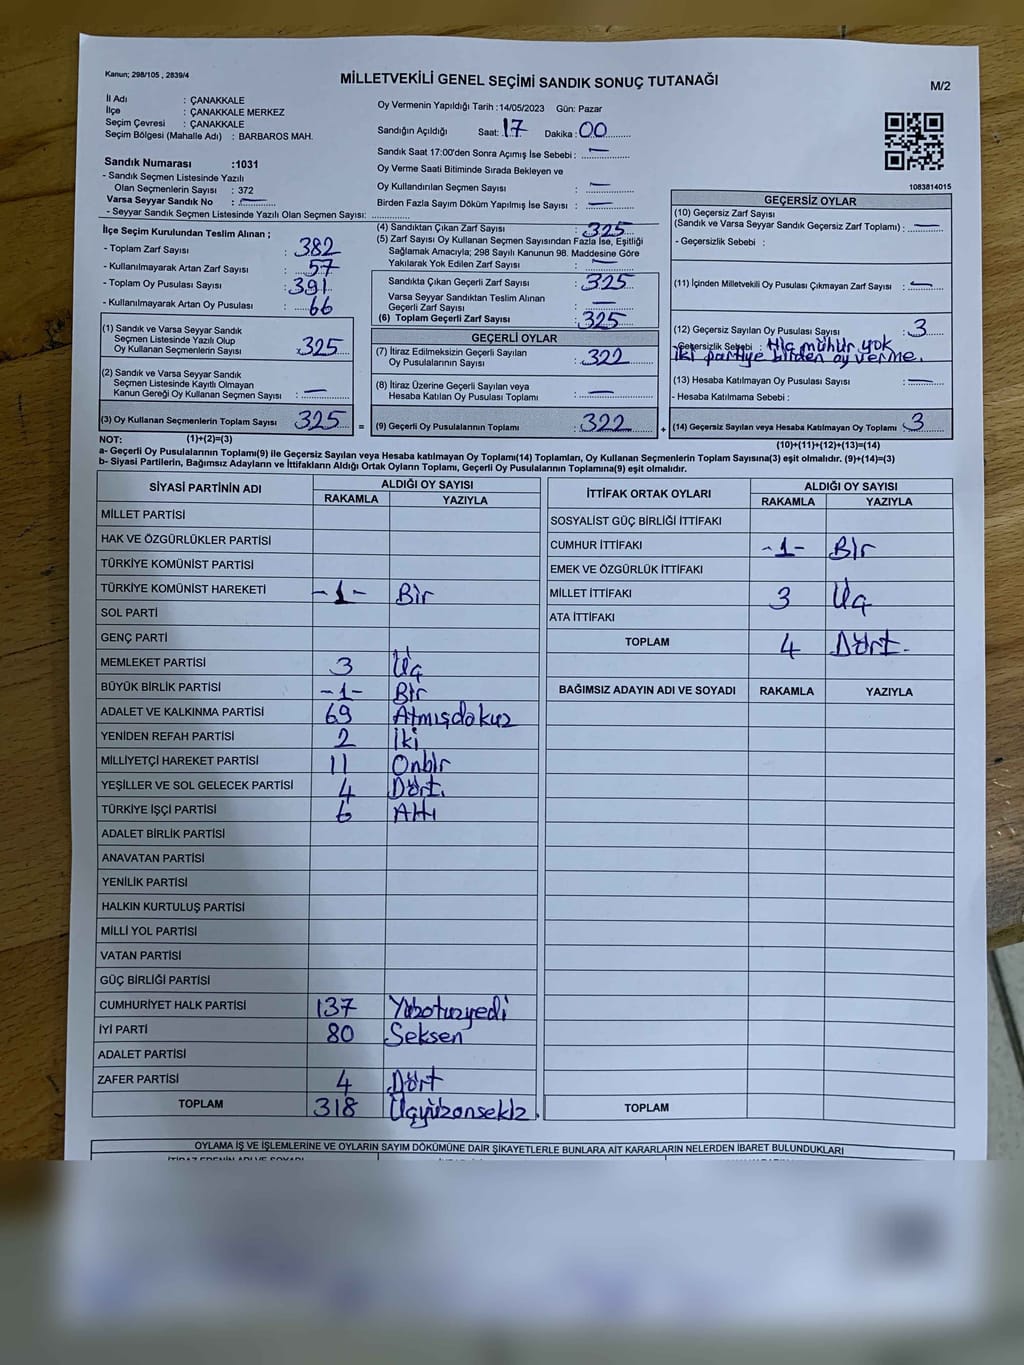 Kanun; 298/105 , 2839/4
MİLLETVEKİLİ GENEL SEÇİMİ SANDIK SONUÇ TUTANAĞI
M/2
İl Adı : ÇANAKKALE
İlçe : ÇANAKKALE MERKEZ
Seçim Çevresi : ÇANAKKALE
Seçim Bölgesi (Mahalle Adı) : BARBAROS MAH.
Sandık Numarası :1031
- Sandık Seçmen Listesinde Yazılı
Olan Seçmenlerin Sayısı : 372
Varsa Seyyar Sandık No : —
- Seyyar Sandık Seçmen Listesinde Yazılı Olan Seçmen Sayısı: ..............
Oy Vermenin Yapıldığı Tarih :14/05/2023 Gün: Pazar
Sandığın Açıldığı Saat: 17 Dakika : 00
Sandık Saat 17:00'den Sonra Açımış İse Sebebi : —
Oy Verme Saati Bitiminde Sırada Bekleyen ve
Oy Kullandırılan Seçmen Sayısı : —
Birden Fazla Sayım Döküm Yapılmış İse Sayısı : —
1083814015
İlçe Seçim Kurulundan Teslim Alınan ;
- Toplam Zarf Sayısı : 382
- Kullanılmayarak Artan Zarf Sayısı : 57
- Toplam Oy Pusulası Sayısı : 391
- Kullanılmayarak Artan Oy Pusulası : 66
(1) Sandık ve Varsa Seyyar Sandık
Seçmen Listesinde Yazılı Olup
Oy Kullanan Seçmenlerin Sayısı : 325
(2) Sandık ve Varsa Seyyar Sandık
Seçmen Listesinde Kayıtlı Olmayan
Kanun Gereği Oy Kullanan Seçmen Sayısı : —
(3) Oy Kullanan Seçmenlerin Toplam Sayısı : 325 =
(4) Sandıktan Çıkan Zarf Sayısı : 325
(5) Zarf Sayısı Oy Kullanan Seçmen Sayısından Fazla İse, Eşitliği
Sağlamak Amacıyla; 298 Sayılı Kanunun 98. Maddesine Göre
Yakılarak Yok Edilen Zarf Sayısı : —
Sandıkta Çıkan Geçerli Zarf Sayısı : 325
Varsa Seyyar Sandıktan Teslim Alınan
Geçerli Zarf Sayısı : —
(6) Toplam Geçerli Zarf Sayısı : 325
GEÇERLİ OYLAR
(7) İtiraz Edilmeksizin Geçerli Sayılan
Oy Pusulalarının Sayısı : 322
(8) İtiraz Üzerine Geçerli Sayılan veya
Hesaba Katılan Oy Pusulası Toplamı : —
(9) Geçerli Oy Pusulalarının Toplamı : 322 +
GEÇERSİZ OYLAR
(10) Geçersiz Zarf Sayısı
(Sandık ve Varsa Seyyar Sandık Geçersiz Zarf Toplamı) : —
- Geçersizlik Sebebi :
(11) İçinden Milletvekili Oy Pusulası Çıkmayan Zarf Sayısı : —
(12) Geçersiz Sayılan Oy Pusulası Sayısı : 3
- Geçersizlik Sebebi : Hiç mühür yok
iki partiye birden oy verme.
(13) Hesaba Katılmayan Oy Pusulası Sayısı : —
- Hesaba Katılmama Sebebi :
(14) Geçersiz Sayılan veya Hesaba Katılmayan Oy Toplamı : 3
NOT: (1)+(2)=(3)
(10)+(11)+(12)+(13)=(14)
a- Geçerli Oy Pusulalarının Toplamı(9) ile Geçersiz Sayılan veya Hesaba katılmayan Oy Toplamı(14) Toplamları, Oy Kullanan Seçmenlerin Toplam Sayısına(3) eşit olmalıdır. (9)+(14)=(3)
b- Siyasi Partilerin, Bağımsız Adayların ve İttifakların Aldığı Ortak Oyların Toplamı, Geçerli Oy Pusulalarının Toplamına(9) eşit olmalıdır.
SİYASİ PARTİNİN ADI ALDIĞI OY SAYISI
RAKAMLA YAZIYLA
MİLLET PARTİSİ
HAK VE ÖZGÜRLÜKLER PARTİSİ
TÜRKİYE KOMÜNİST PARTİSİ
TÜRKİYE KOMÜNİST HAREKETİ -1- Bir
SOL PARTİ
GENÇ PARTİ
MEMLEKET PARTİSİ 3 Üç
BÜYÜK BİRLİK PARTİSİ -1- Bir
ADALET VE KALKINMA PARTİSİ 69 Atmışdokuz
YENİDEN REFAH PARTİSİ 2 İki
MİLLİYETÇİ HAREKET PARTİSİ 11 Onbir
YEŞİLLER VE SOL GELECEK PARTİSİ 4 Dört.
TÜRKİYE İŞÇİ PARTİSİ 6 Altı
ADALET BİRLİK PARTİSİ
ANAVATAN PARTİSİ
YENİLİK PARTİSİ
HALKIN KURTULUŞ PARTİSİ
MİLLİ YOL PARTİSİ
VATAN PARTİSİ
GÜÇ BİRLİĞİ PARTİSİ
CUMHURİYET HALK PARTİSİ 137 Yüzotuzyedi
İYİ PARTİ 80 Seksen
ADALET PARTİSİ
ZAFER PARTİSİ 4 Dört
TOPLAM 318 Üçyüzonsekiz.
İTTİFAK ORTAK OYLARI ALDIĞI OY SAYISI
RAKAMLA YAZIYLA
SOSYALİST GÜÇ BİRLİĞİ İTTİFAKI
CUMHUR İTTİFAKI -1- Bir
EMEK VE ÖZGÜRLÜK İTTİFAKI
MİLLET İTTİFAKI 3 Üç
ATA İTTİFAKI
TOPLAM 4 Dört.
BAĞIMSIZ ADAYIN ADI VE SOYADI RAKAMLA YAZIYLA
TOPLAM
OYLAMA İŞ VE İŞLEMLERİNE VE OYLARIN SAYIM DÖKÜMÜNE DAİR ŞİKAYETLERLE BUNLARA AİT KARARLARIN NELERDEN İBARET BULUNDUKLARI